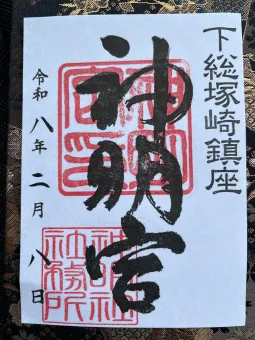 下総塚崎鎮座
神明宮
令和八年二月八日
神明宮印
神明社社務所